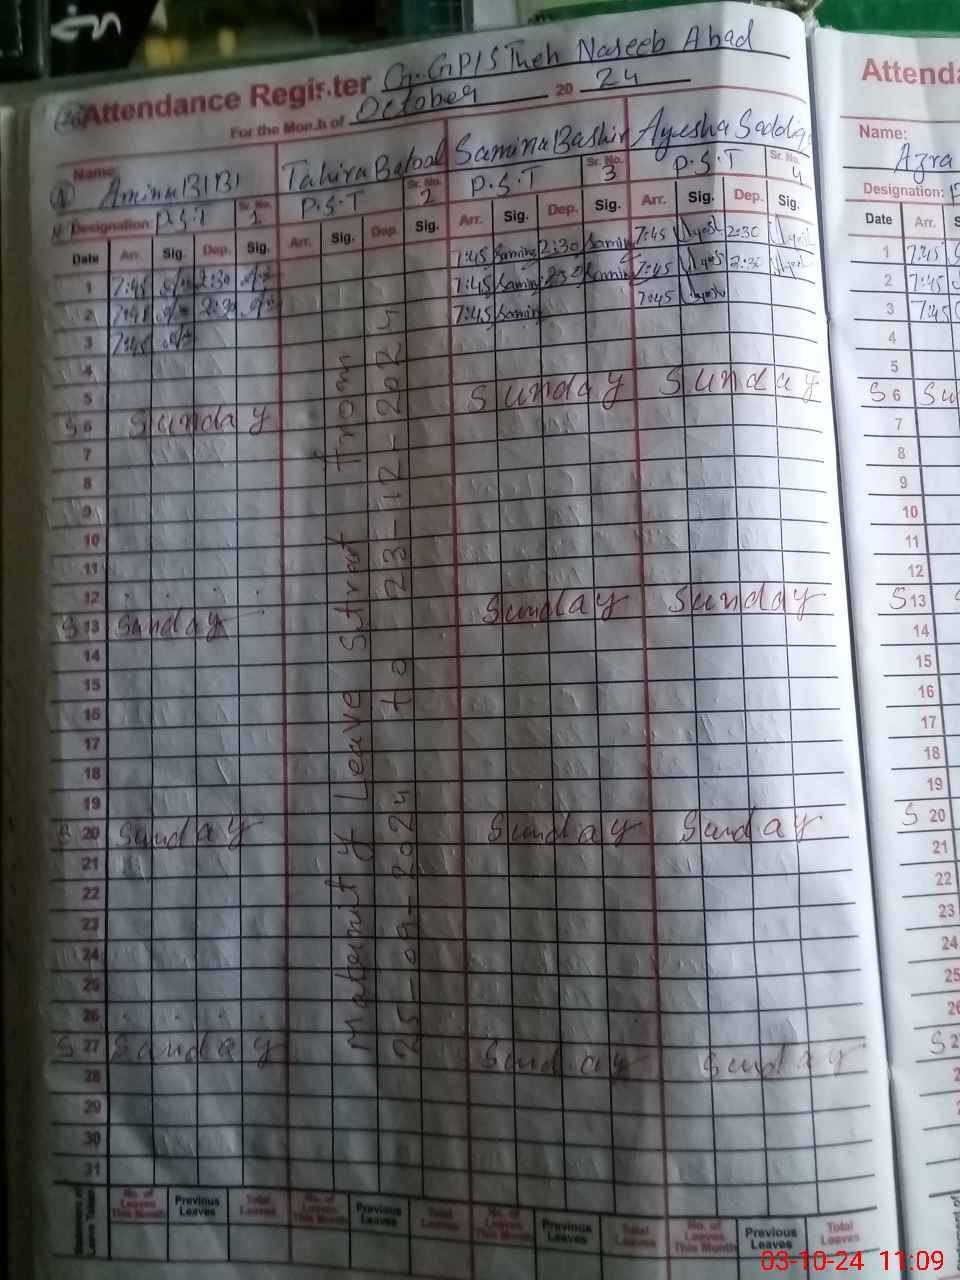 Attendance Register G.GP/S Theh Naseeb Abad
For the Month of October 20 24
Name: Amina BIBI Tahira Batool Samina Bashir Ayesha Saddiqa
Designation: P.S.T Sr. No. 1 P.S.T Sr. No. 2 P.S.T Sr. No. 3 P.S.T Sr. No. 4
Date Arr. Sig. Dep. Sig. Arr. Sig. Dep. Sig. Arr. Sig. Dep. Sig. Arr. Sig. Dep. Sig.
1 7:45 2:30 7:45 Samina 2:30 Samina 7:45 Ayesh 2:30 Ayesh
2 7:45 2:30 7:45 Samina 2:30 Samina 7:45 Ayesh 2:30 Ayesh
3 7:45 7:45 Samina 7:45 Ayesh
4
5
S 6 Sunday Sunday Sunday
7
8
9
10
11
12
S 13 Sunday Sunday Sunday
14
15
16
17
18
19
S 20 Sunday Sunday Sunday
21
22
23
24
25
26
S 27 Sunday Sunday Sunday
28
29
30
31
Maternity Leave Strat From
25-09-2024 to 23-12-2024
Statement of Leave Taken
No. of Leaves This Month Previous Leaves Total Leaves No. of Leaves This Month Previous Leaves Total Leaves No. of Leaves This Month Previous Leaves Total Leaves No. of Leaves This Month Previous Leaves Total Leaves
Attenda
Name:
Azra
Designation: P
Date Arr. S
1 7:45
2 7:45
3 7:45
4
5
S 6 Su
7
8
9
10
11
12
S 13 S
14
15
16
17
18
19
S 20
21
22
23
24
25
26
S 2
03-10-24 11:09